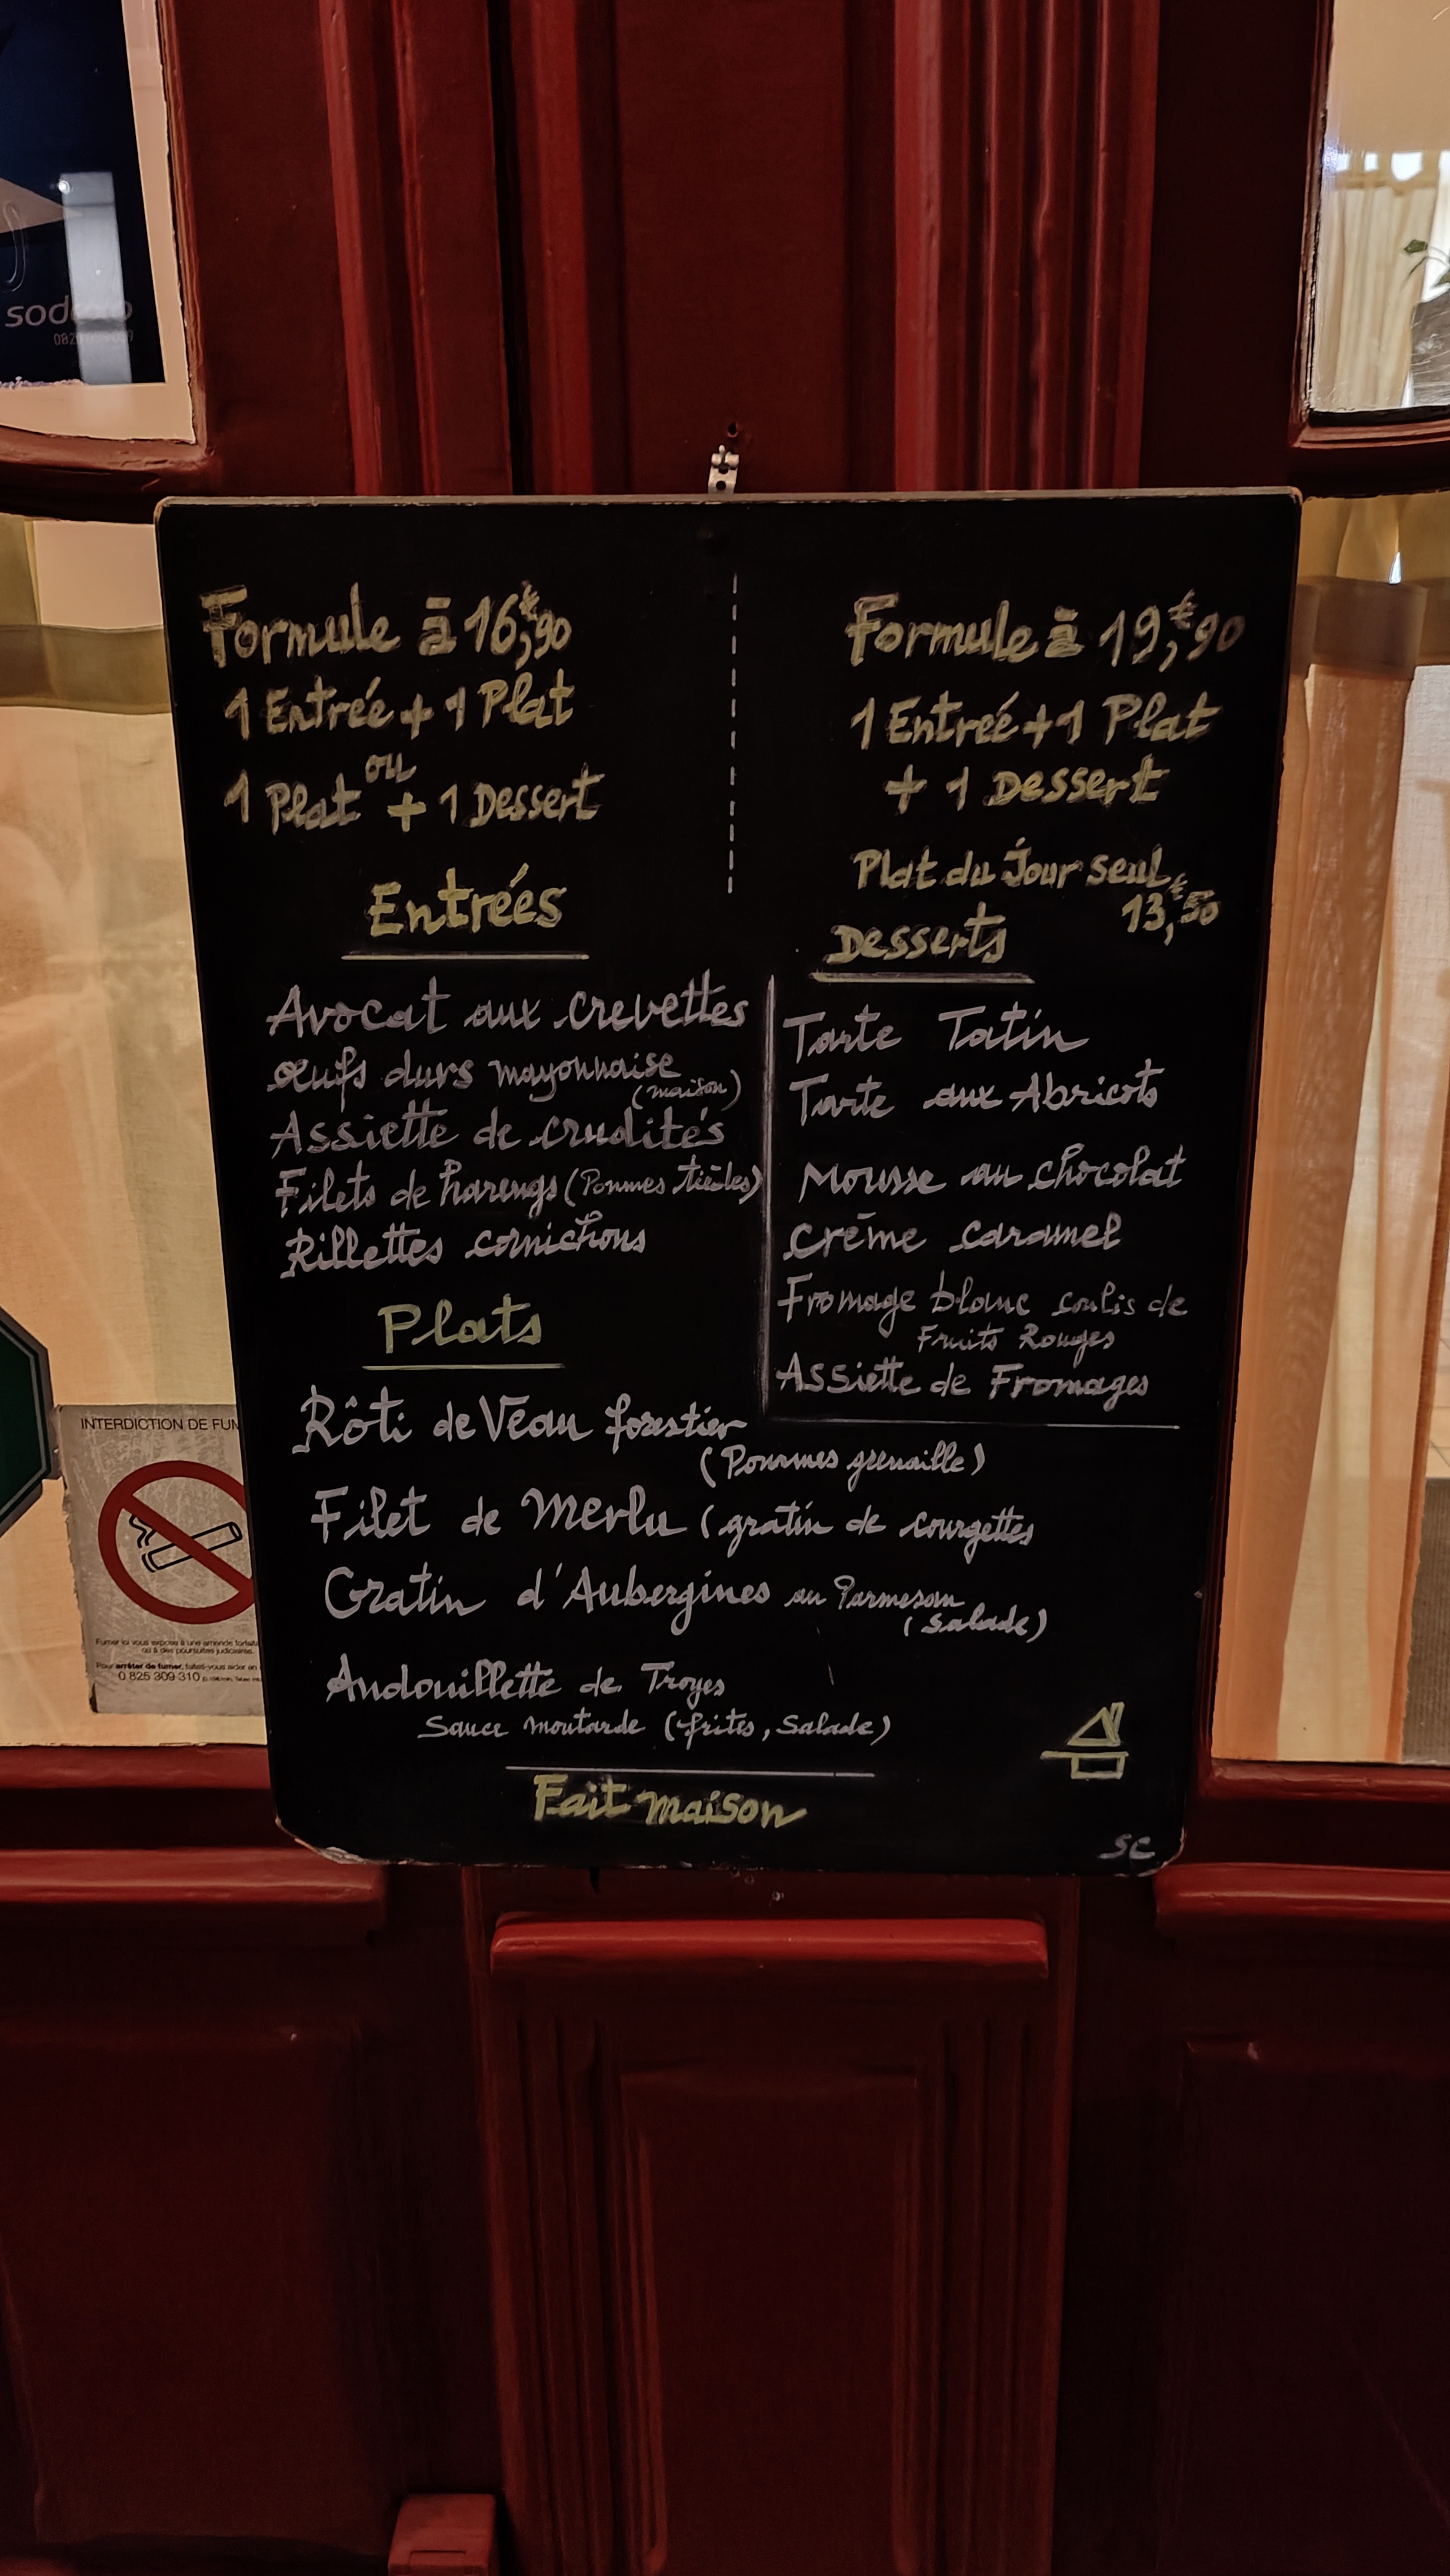 sodexo
Formule à 16,€90
1 Entrée + 1 Plat
ou
1 Plat + 1 Dessert
Formule à 19,€90
1 Entreé + 1 Plat
+ 1 Dessert
Plat du Jour seul
13,€50
Entrées
Avocat aux crevettes
œufs durs mayonnaise
(maison)
Assiette de crudités
Filets de harengs (Pommes tièdes)
Rillettes cornichons
Desserts
Tarte Tatin
Tarte aux Abricots
Mousse au chocolat
Crème caramel
Fromage blanc coulis de
Fruits Rouges
Assiette de Fromages
Plats
Rôti de Veau forestier
(Pommes grenaille)
Filet de Merlu (gratin de courgettes
Gratin d'Aubergines au Parmesan
(Salade)
Andouillette de Troyes
Sauce moutarde (frites, Salade)
Fait maison
SC
INTERDICTION DE FUM
Fumer ici vous expose à une amende forfait
ou à des poursuites judiciaires.
Pour arrêter de fumer, faites-vous aider en
0 825 309 310